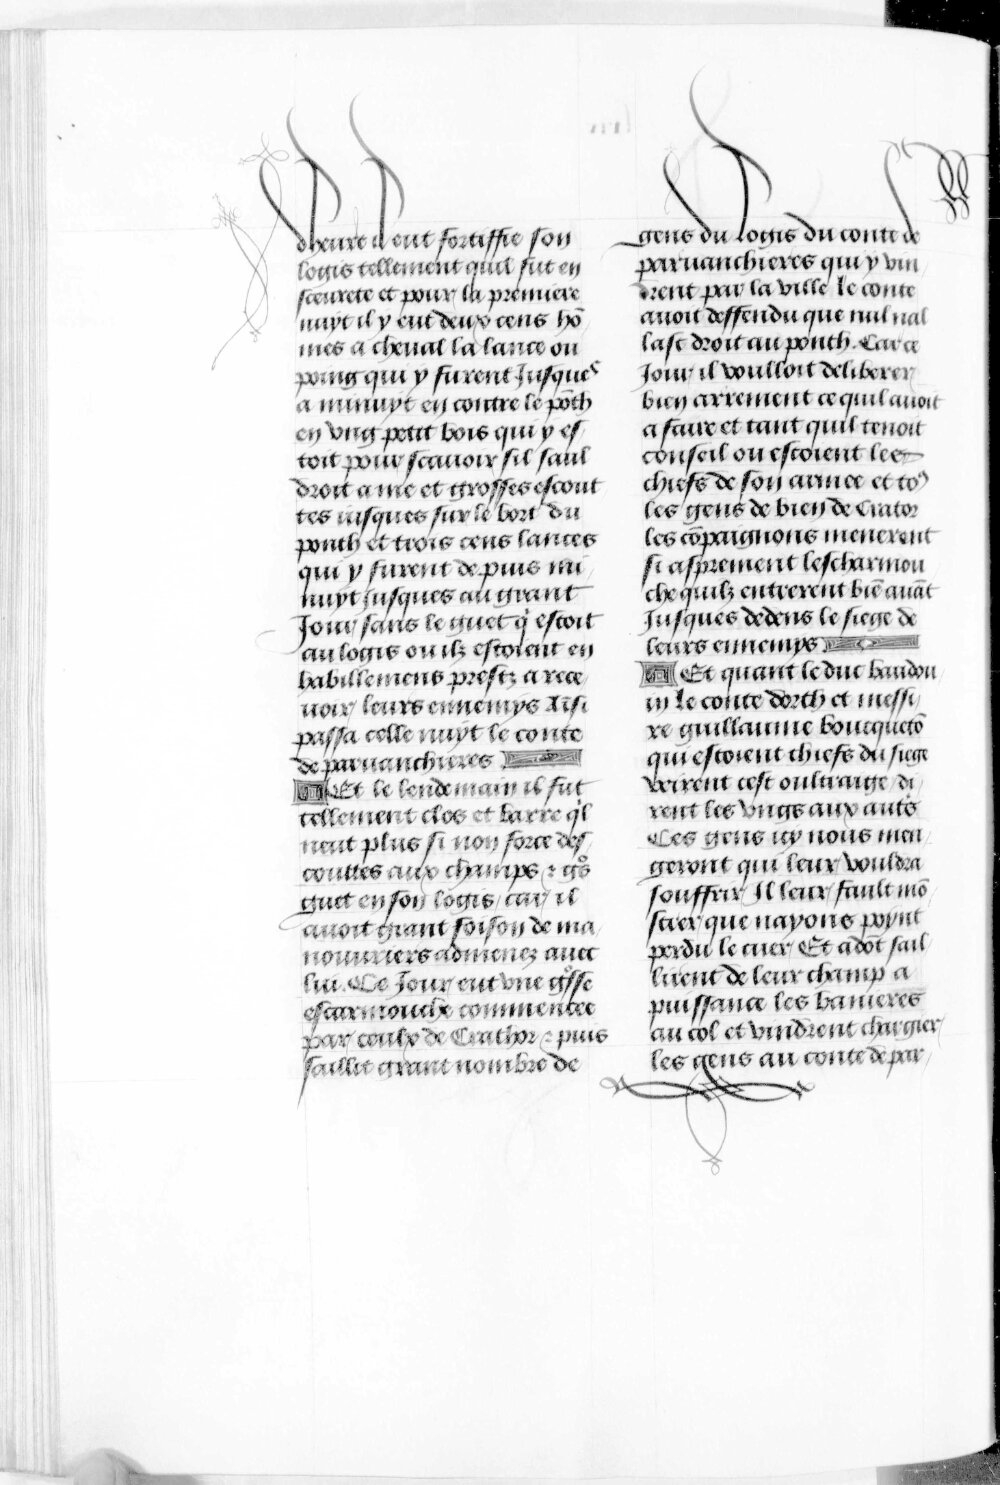 dheure il eut fortiffie son
logis tellement quil fut en
sceurete et pour la premiere
nuyt il y eut deux cens hō
mes a cheval la lance ou
poing qui y furent Jusques
a minuyt en contre le pōth
en vng petit bois qui y es
toit pour scavoir sil saul
droit ame et grosses escout
tes iusques sur le bort du
ponth et trois cens lances
qui y furent de puis mi
nuyt jusques au grant
Jour sans le guet q̄ estoit
au logis ou ilz estoient en
habillemens prestz a rece
voir leurs ennemys Aīsi
passa celle nuyt le conte
de paruanchieres
Et le lendemain il fut
tellement clos et barre q̄l
neut plus si non force des
couttes aux champs ⁊ gōs
guet en son logis car il
auoit grant foison de ma
nouuriers admenez auec
lui. Ce Jour eut vne gōsse
escarmouche commencee
par ceulx de Crathor ⁊ puis
saillit grant nombre de
gens du logis du conte de
paruanchieres qui y vin
drent par la ville le conte
auoit deffendu que nul nal
last droit au ponth. Car ce
Jour il voulloit deliberer
bien arrement ce quil auoit
a faire et tant quil tenoit
conseil ou estoient les
chiefs de son armee et to9
les gens de bien de Crator
les cōpaignons menerent
si asprement lescharmou
che quilz entrerent biē auāt
Jusques dedens le siege de
leurs ennemys
Et quant le duc baudou
in le conte dorth et messi
re guillaume boucquetō
qui estoient chiefs du siege
veirent cest oultraige di
rent les vngs aux autōs
Ces gens icy nous men
geront qui leur vouldra
souffrir Il leur fault mō
strer que nayons poynt
perdu le cuer Et adōt sail
lirent de leur champ a
puissance les banieres
au col et vindrent chargier
les gens au conte de par